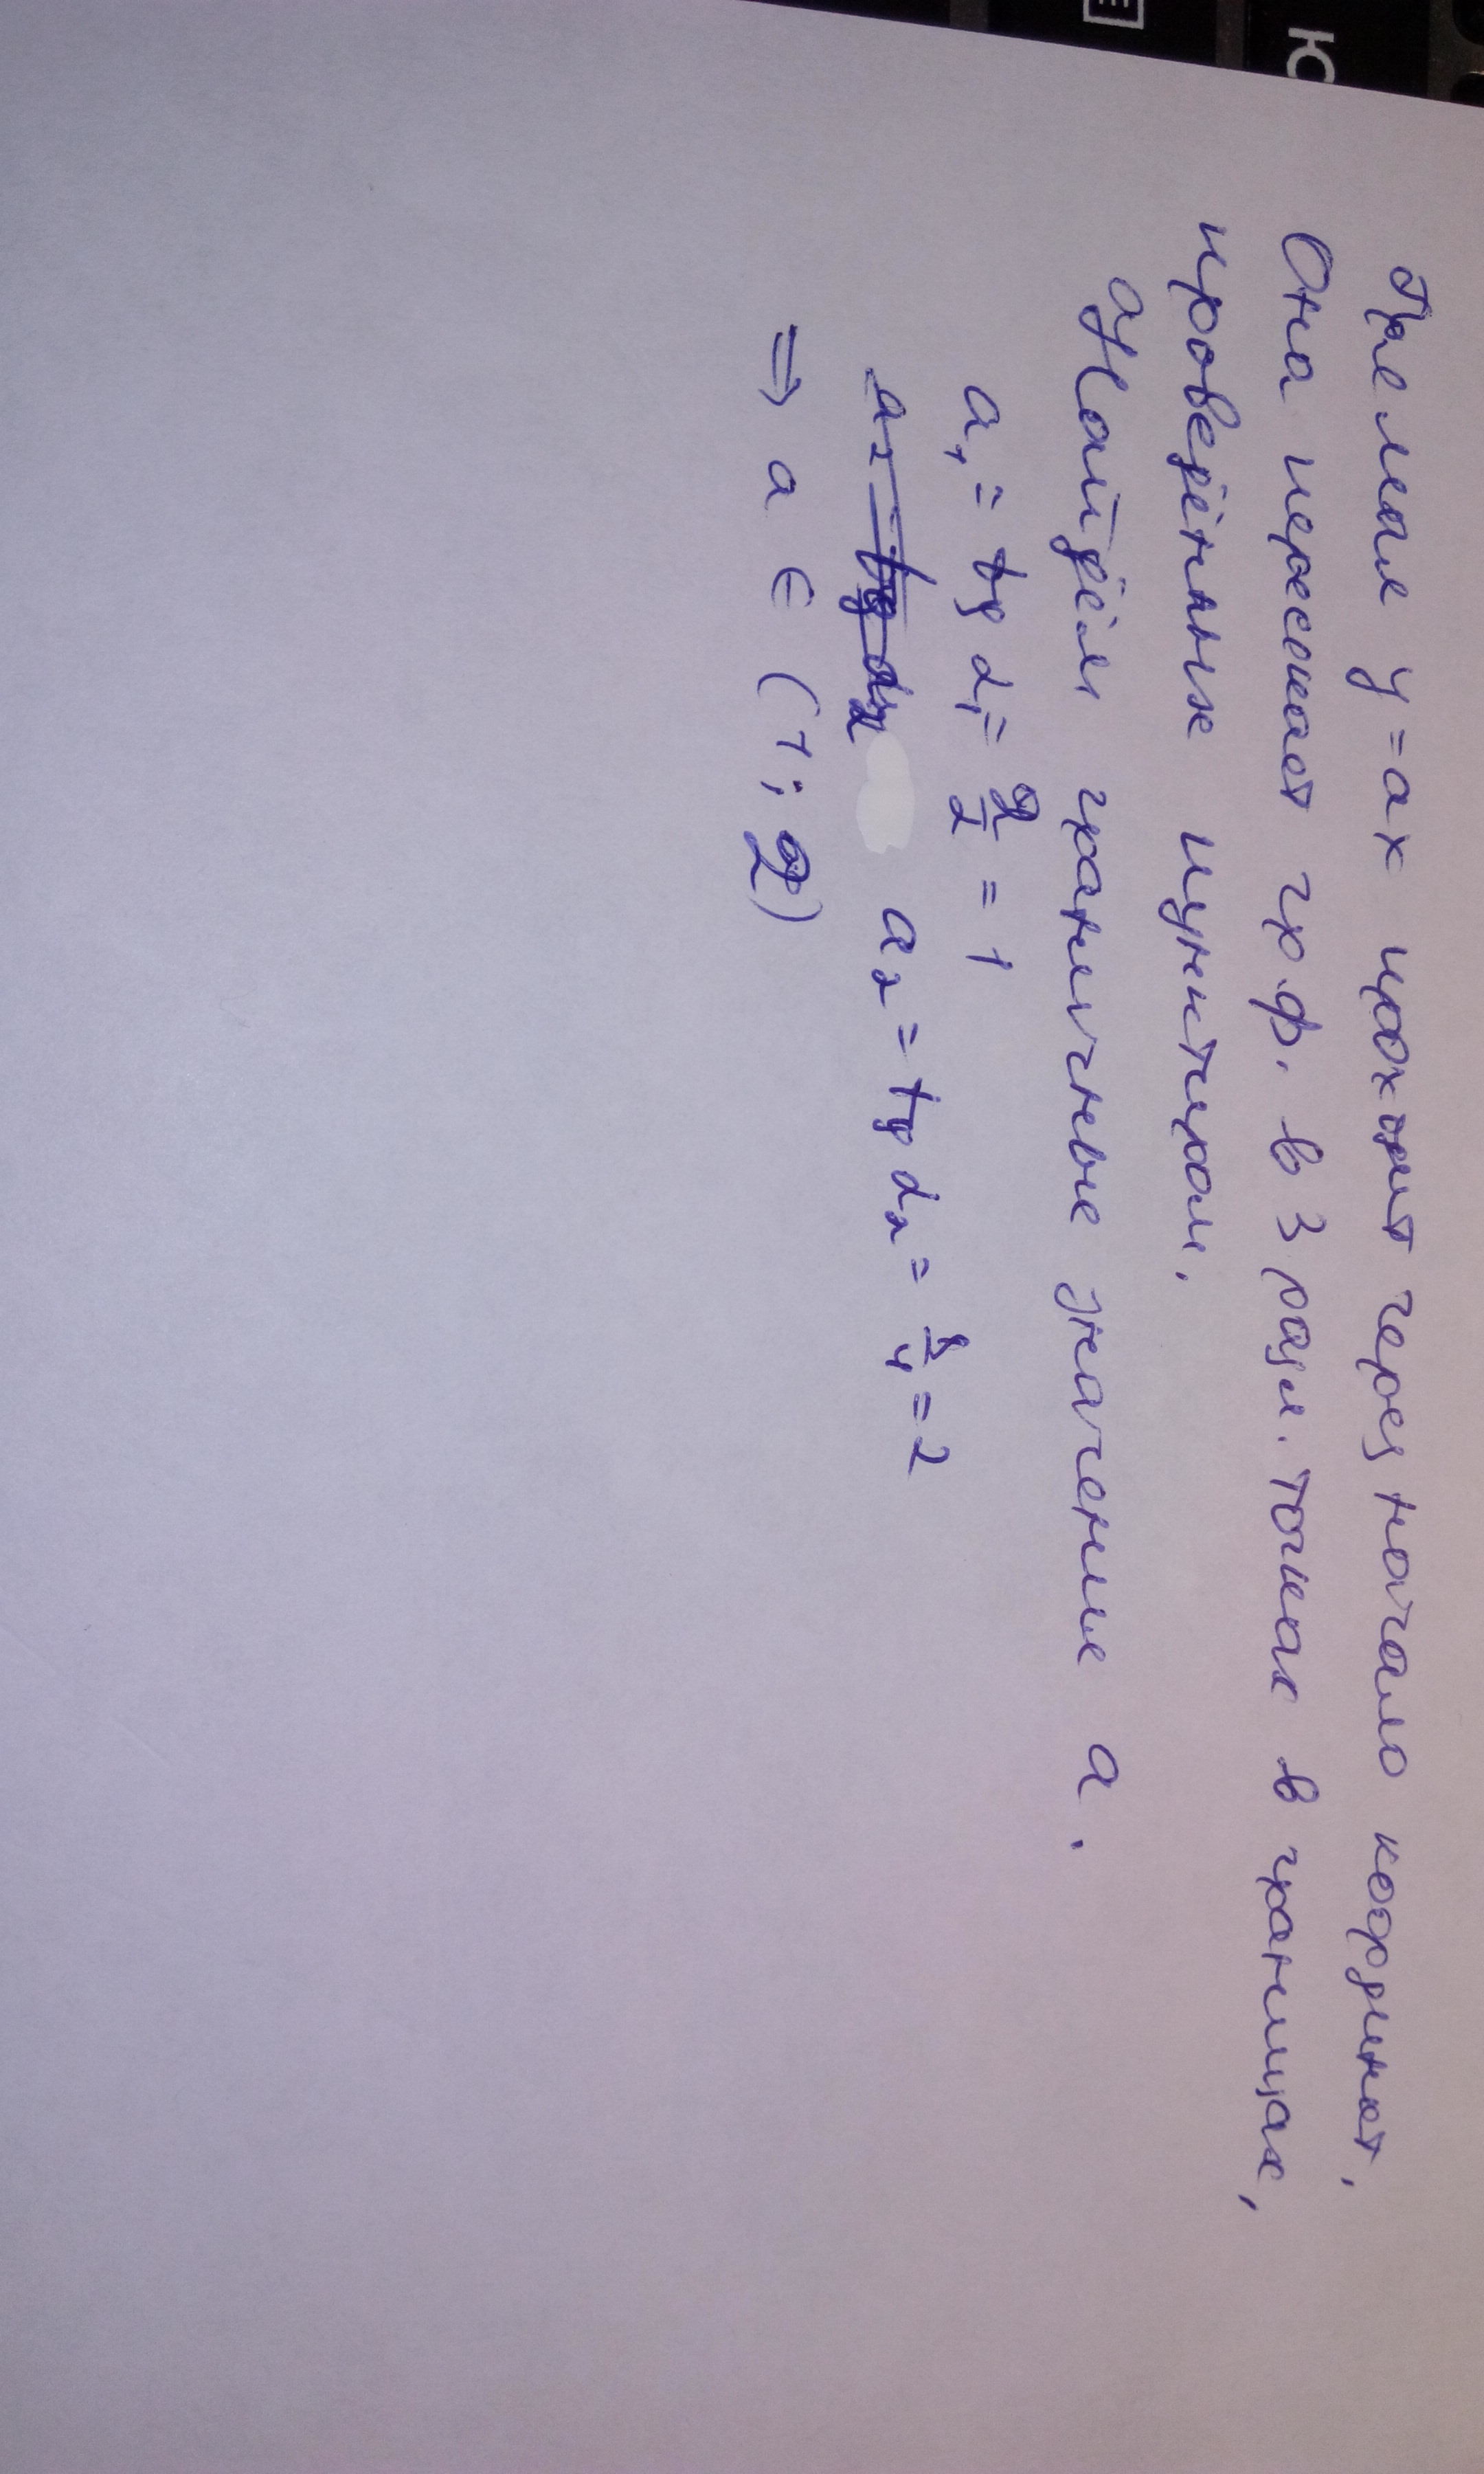 Прямая y=ax проходит через начало кординат.
Она пересекает гр.ф. в 3 разл. точках в границах,
проведённых пунктиром.
Найдём граничные значения a.
a₁ = tg α₁ = 2/2 = 1
a₂ = tg α₂ a₂ = tg α₂ = 8/4 = 2
⇒ a ∈ (1; 2)
Ю